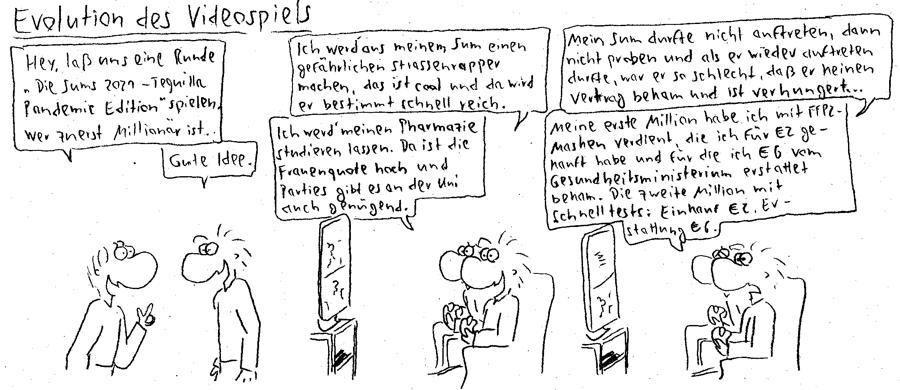 Evolution des Videospiels
Hey, laß uns eine Runde
„Die Sums 2021 - Tequilla
Pandemic Edition" spielen.
Wer zuerst Millionär ist..
Gute Idee.
Ich werd aus meinem Sum einen
gefährlichen Strassenrapper
machen, das ist cool und da wird
er bestimmt schnell reich.
Ich werd' meinen Pharmazie
studieren lassen. Da ist die
Frauenquote hoch und
Parties gibt es an der Uni
auch genügend.
Mein Sum durfte nicht auftreten, dann
nicht proben und als er wieder auftreten
durfte, war er so schlecht, daß er keinen
Vertrag bekam und ist verhungert...
Meine erste Million habe ich mit FFP2-
Masken verdient, die ich für €2 ge-
kauft habe und für die ich €6 vom
Gesundheitsministerium erstattet
bekam. Die zweite Million mit
Schnelltests: Einkauf €2. Er-
stattung €6.